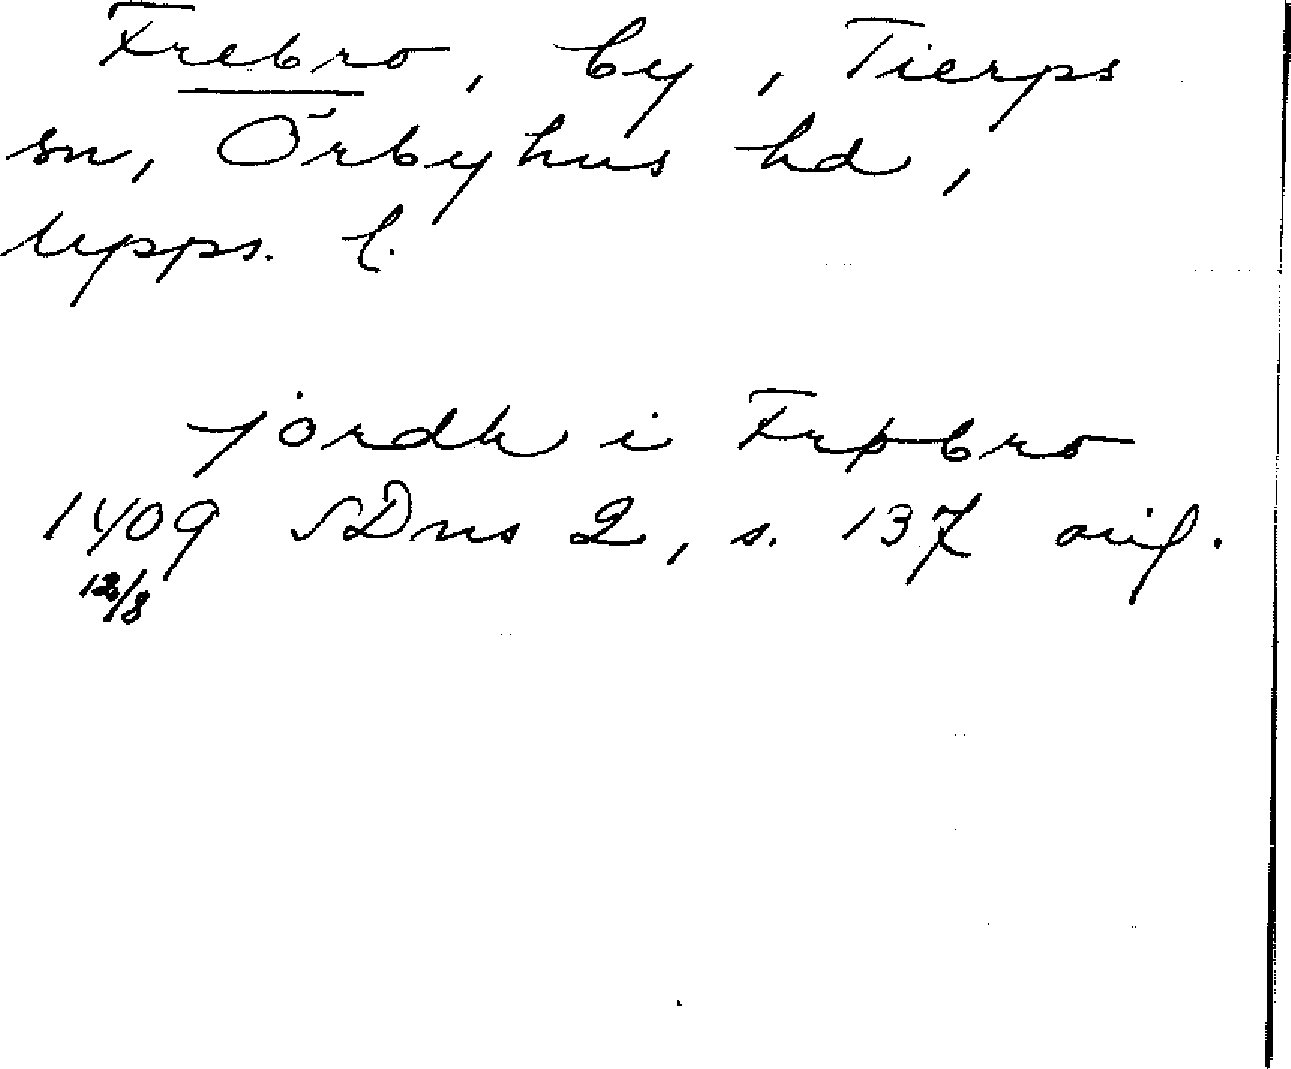 Frebro, by, Tierps
sn, Örbyhus hd,
Upps. l.
jordh i Frþbro
1409 SDns 2, s. 137 orig.
12/8